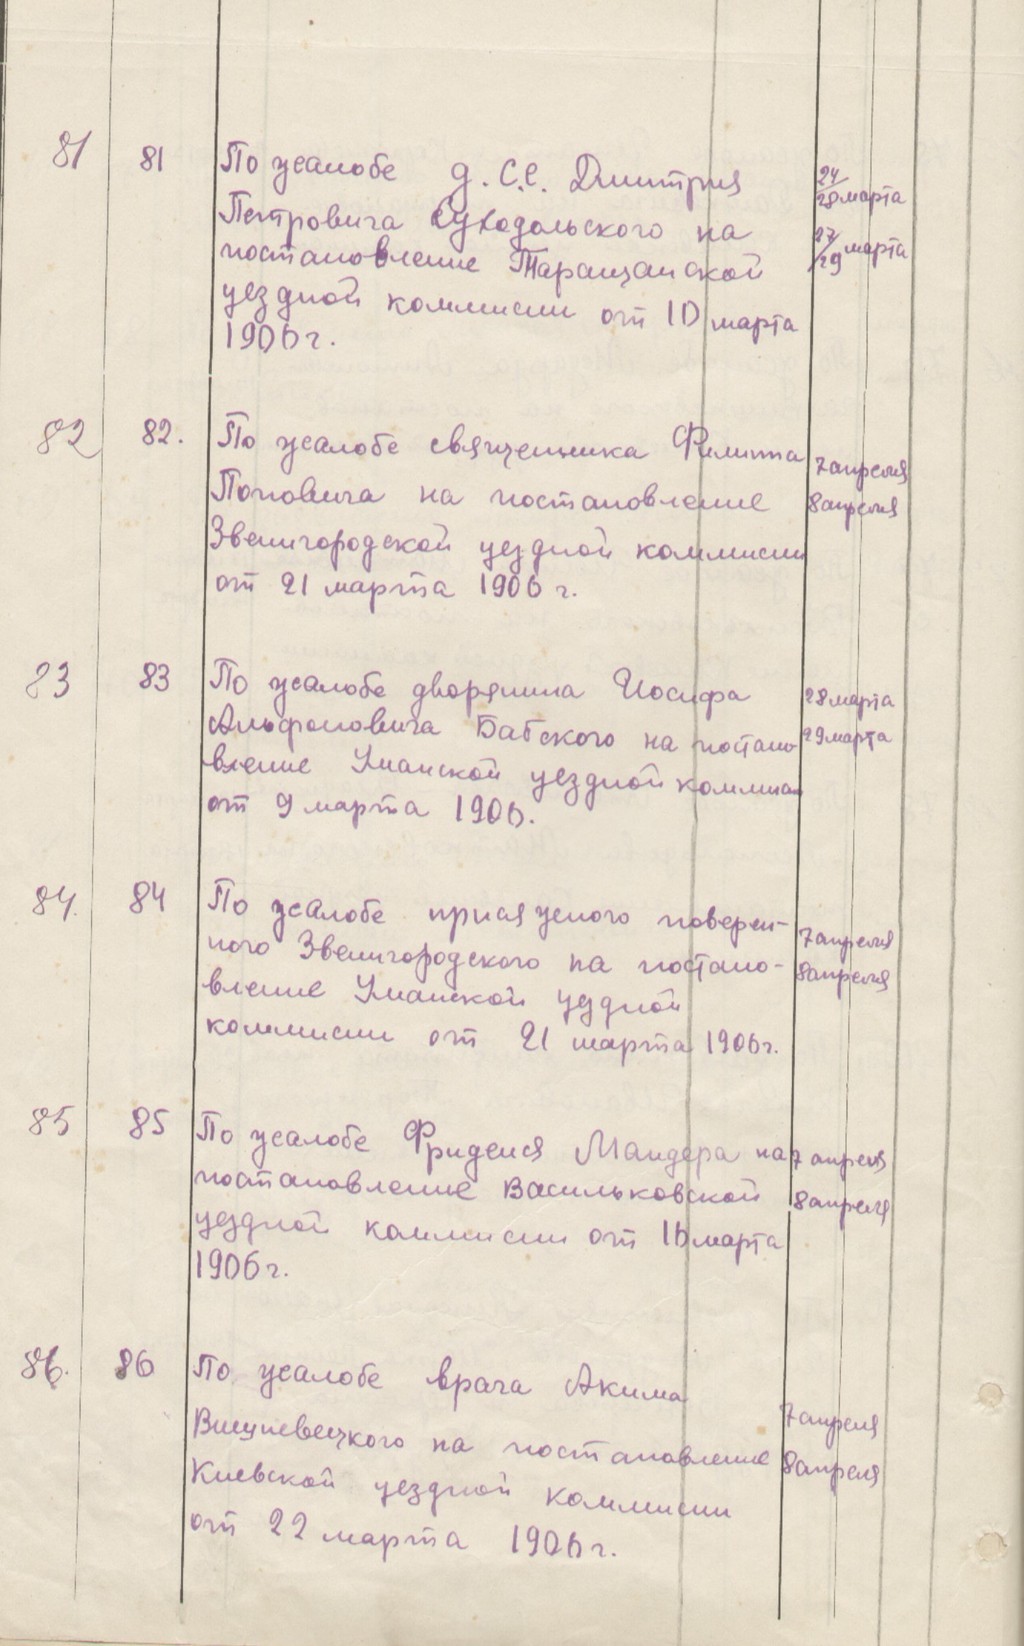 81 81 По жалобе д. С.С. Дмитрия
24/28 марта
Петровича Суходольского на
27/29 марта
постановление Таращанской
уездной коммисии от 10 марта
1906 г.
82 82. По жалобе священника Филиппа
7 апреля
Поповича на постановление
8 апреля
Звенигородской уездной коммисии
от 21 марта 1906 г.
83 83 По жалобе дворянина Иосифа
28 марта
Альфонсовича Бабского на постано-
29 марта
вление Уманской уездной коммисии
от 9 марта 1906.
84. 84 По жалобе присяжного поверен-
7 апреля
ного Звенигородского на постано-
8 апреля
вление Уманской уездной
коммисии от 21 марта 1906 г.
85 85 По жалобе Фриделя Мандера на
7 апреля
постановление Васильковской
8 апреля
уездной коммисии от 16 марта
1906 г.
86. 86 По жалобе врача Акима
7 апреля
Вишневецкого на постановление
8 апреля
Киевской уездной коммисии
от 22 марта 1906 г.